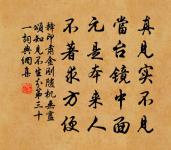 真見實不見
當台鏡中面
元是本來人
不著求方便
釋印肅金剛隨機無盡
頌知見不生分第三十
一詞典網書